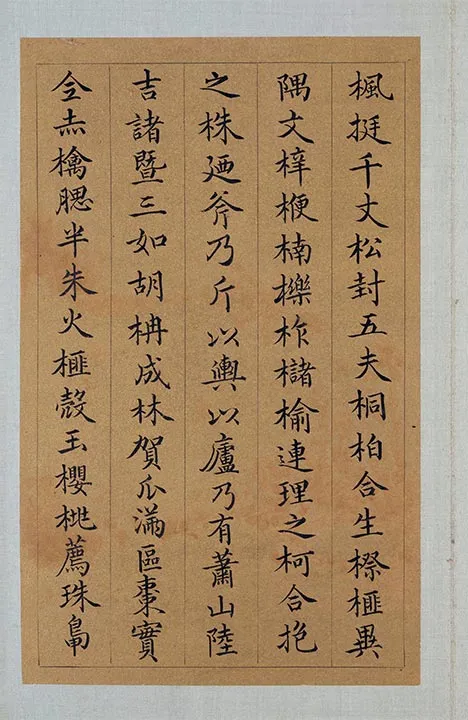 楓挺千丈松封五夫桐柏合生檫榧異
隅文梓楩楠櫟柞櫧榆連理之柯合抱
之株廼斧乃斤以輿以廬乃有蕭山陸
吉諸暨三如胡柟成林賀瓜滿區棗實
全赤檎腮半朱火榧殼玉櫻桃薦珠鳧